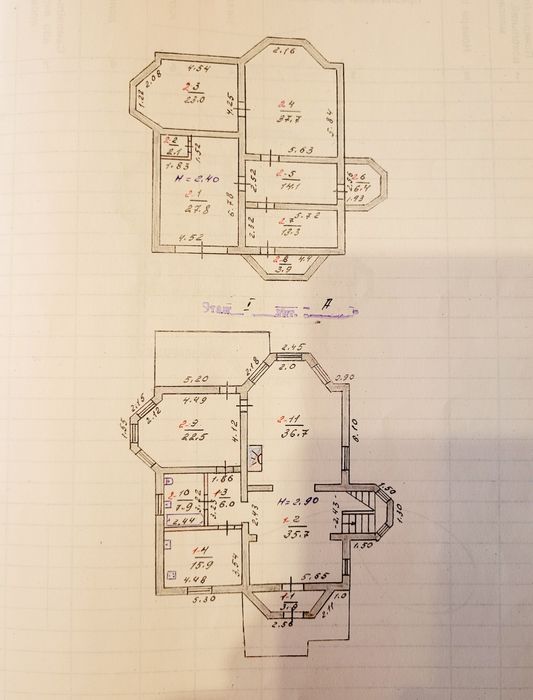 2.16
4.54
2.08
1.22
2.3
23.0
4.25
2.4
37.7
5.84
2.2
2.1
1.52
1.83
5.63
H = 2.40
2.1
27.8
6.78
2.52
2.5
14.1
2.6
6.4
1.93
2.7
5.72
13.3
4.52
2.8
3.9
4.4
Этаж I Лит. А
2.45
2.0
2.18
0.90
5.20
4.49
2.15
2.12
1.65
2.9
22.5
4.12
2.11
36.7
8.10
1.86
2.10
7.9
1.3
6.0
2.44
2.43
H = 2.90
1.2
35.7
2.43
1.50
1.30
1.50
1.4
15.9
3.54
4.48
5.30
5.65
1.1
3.8
1.0
2.11
2.56